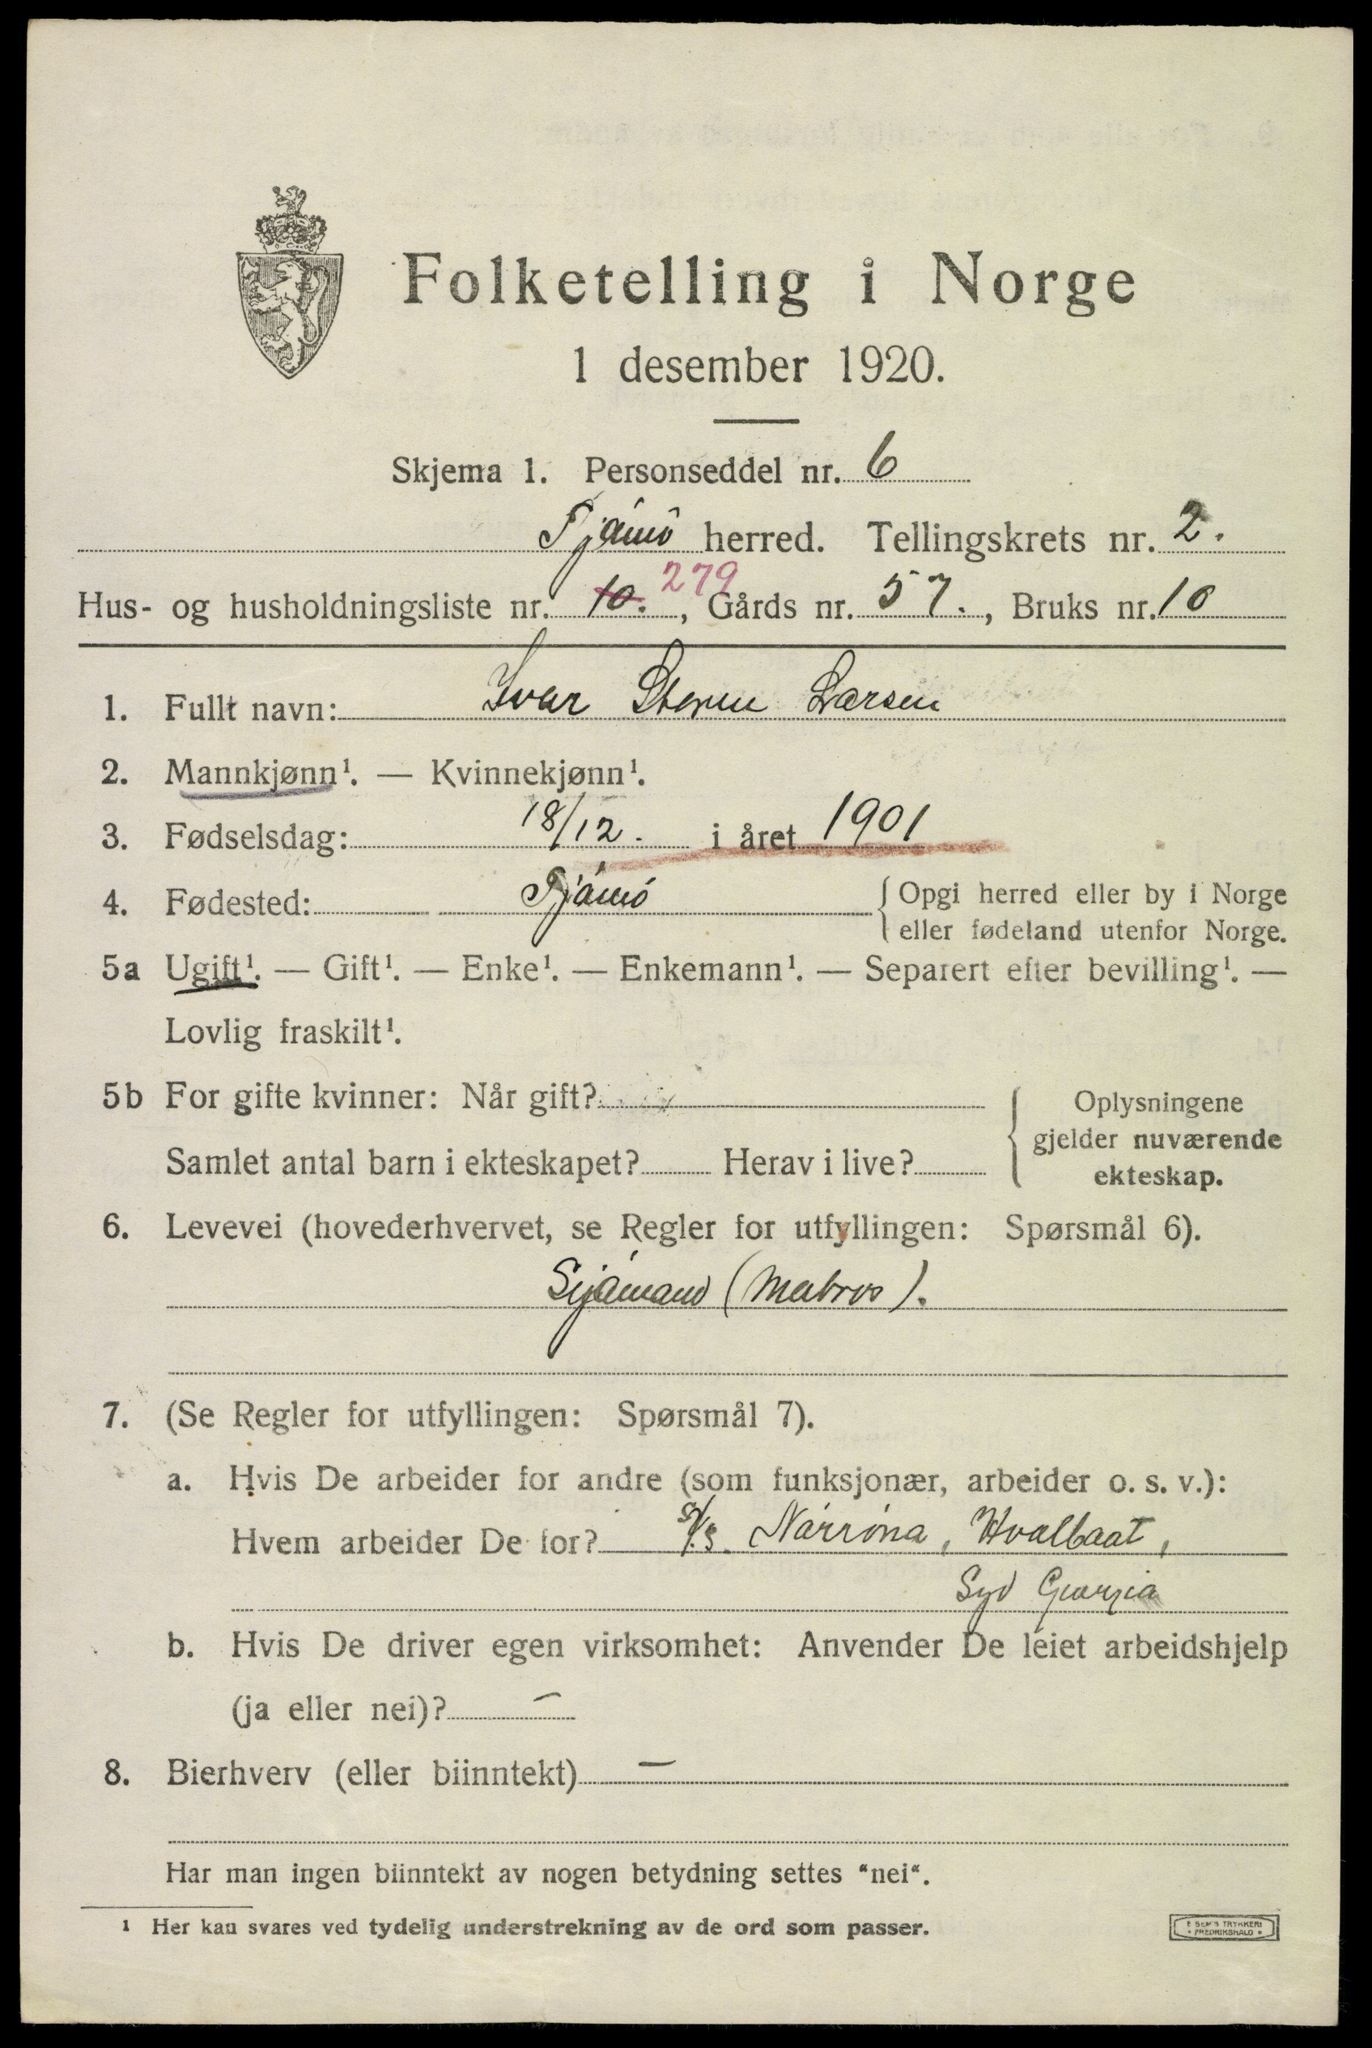 Folketelling i Norge
1 desember 1920.
Skjema 1. Personseddel nr. 6
Tjømø herred. Tellingskrets nr. 2.
Hus- og husholdningsliste nr. 10. 279, Gårds nr. 57., Bruks nr. 10
1. Fullt navn: Ivar Larsen
2. Mannkjønn¹. — Kvinnekjønn¹.
3. Fødselsdag: 18/12. i året 1901
4. Fødested: Tjømø { Opgi herred eller by i Norge
eller fødeland utenfor Norge.
5a Ugift¹. — Gift¹. — Enke¹. — Enkemann¹. — Separert efter bevilling¹. —
Lovlig fraskilt¹.
5b For gifte kvinner: Når gift?
Samlet antal barn i ekteskapet? Herav i live?
Oplysningene
gjelder nuværende
ekteskap.
6. Levevei (hovederhvervet, se Regler for utfyllingen: Spørsmål 6).
Sjømand (Matros).
7. (Se Regler for utfyllingen: Spørsmål 7).
a. Hvis De arbeider for andre (som funksjonær, arbeider o. s. v.):
Hvem arbeider De for? Nórróna, Hvalbaat,
Syd Georgia
b. Hvis De driver egen virksomhet: Anvender De leiet arbeidshjelp
(ja eller nei)? —
8. Bierhverv (eller biinntekt) —
Har man ingen biinntekt av nogen betydning settes "nei".
¹ Her kan svares ved tydelig understrekning av de ord som passer.
E SEM'S TRYKKERI
• FREDRIKSHALD •